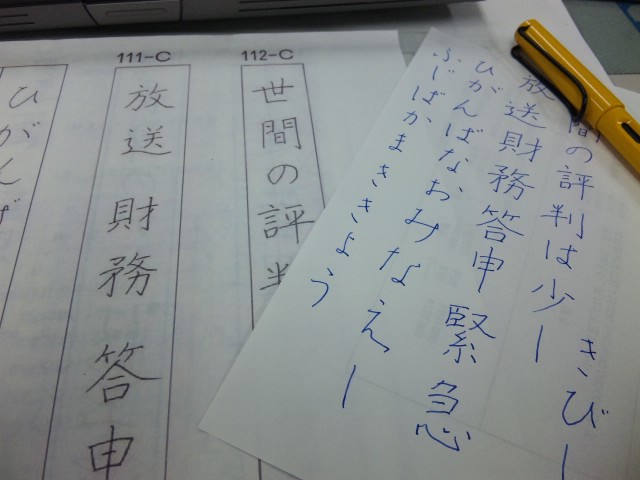 きびし
間の評判は少し
放送財務答申緊急
ひがんばなおみなえし
ふじばかまききょう
112-C
世間の評判
111-C
放送 財務 答申
ひがんば